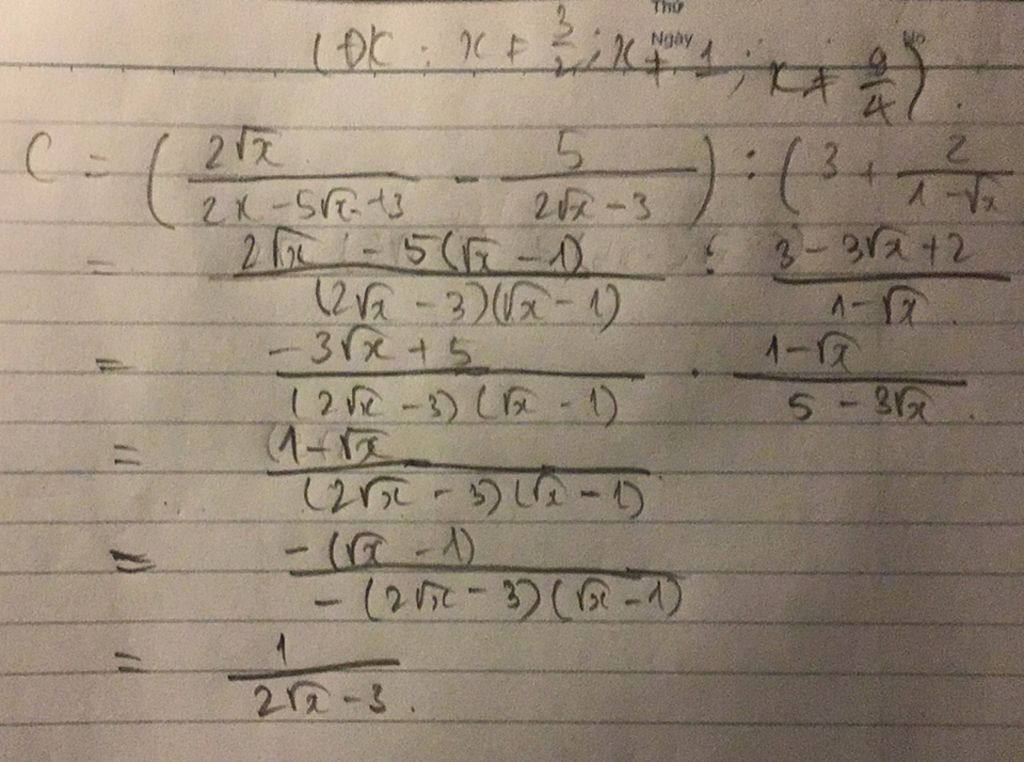 Thứ
Ngày No
(ĐK: x ≠ 3/2; x ≠ 1; x ≠ 9/4).
C = (2√x / (2x - 5√x + 3) - 5 / (2√x - 3)) : (3 + 2 / (1 - √x
= (2√x - 5(√x - 1)) / ((2√x - 3)(√x - 1)) : (3 - 3√x + 2) / (1 - √x).
= (-3√x + 5) / ((2√x - 3)(√x - 1)) . (1 - √x) / (5 - 3√x).
= (1 - √x) / ((2√x - 3)(√x - 1))
= -(√x - 1) / (-(2√x - 3)(√x - 1))
= 1 / (2√x - 3).